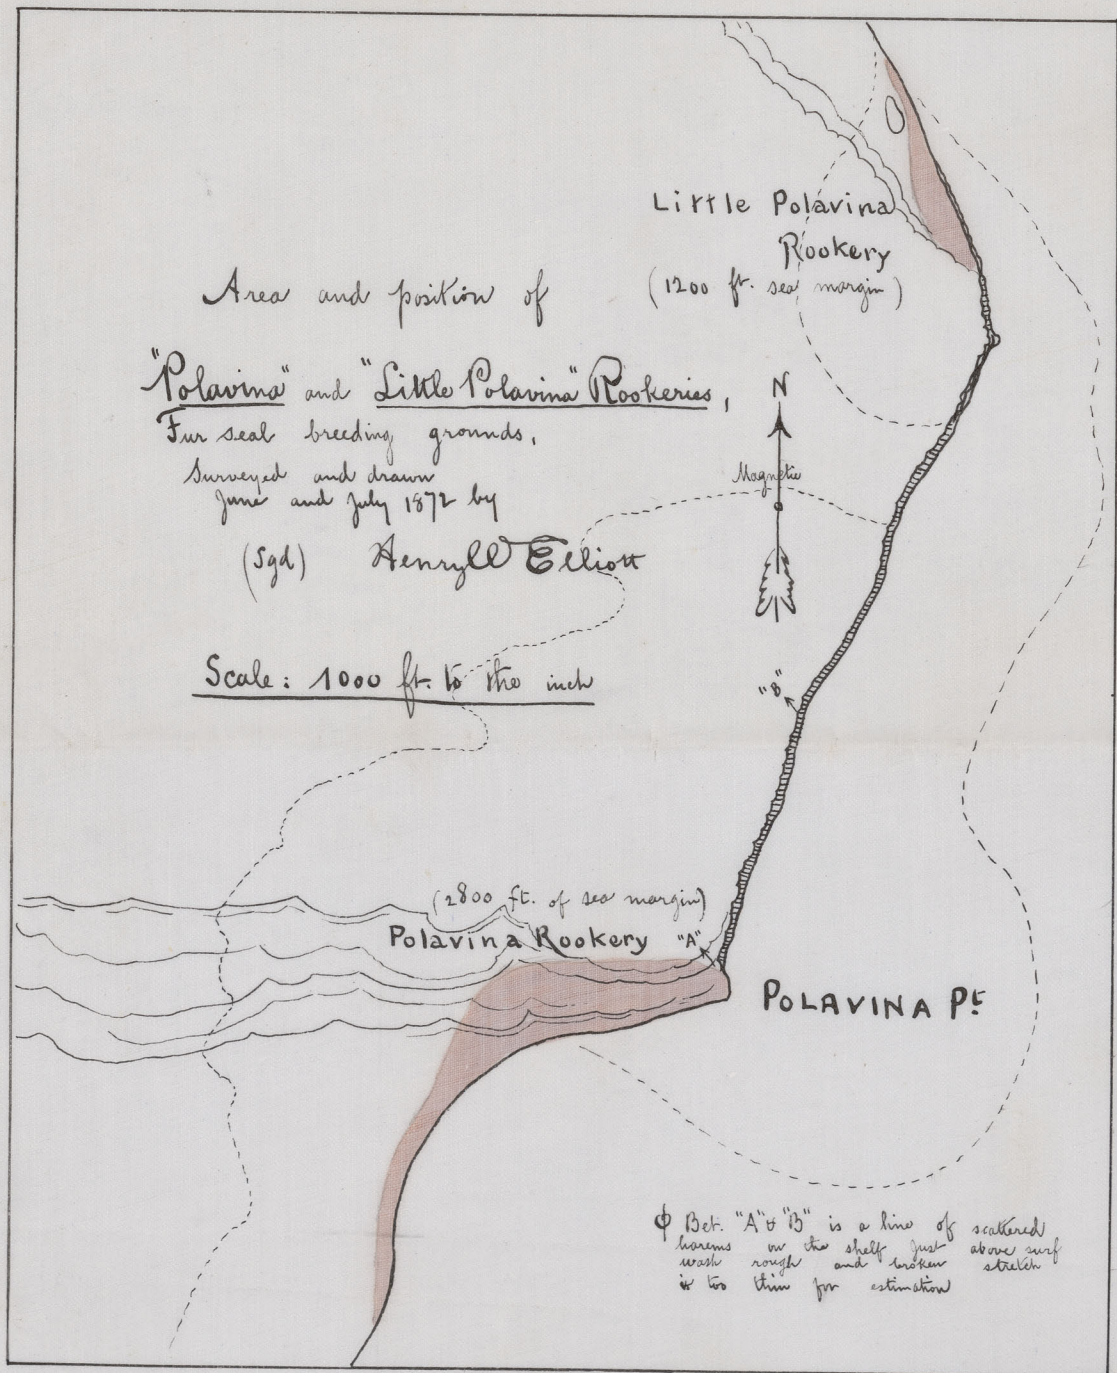 Little Polavina
Rookery
(1200 ft. sea margin)
Area and position of
"Polavina" and "Little Polavina" Rookeries,
Fur seal breeding grounds,
Surveyed and drawn
June and July 1872 by
(Sgd) Henry W Elliott
N
Magnetic
Scale: 1000 ft. to the inch
"B"
(2800 ft. of sea margin)
Polavina Rookery "A"
POLAVINA Pt
ϕ Bet. "A" & "B" is a line of scattered
harems on the shelf just above surf
wash rough and broken stretch
is too thin for estimation